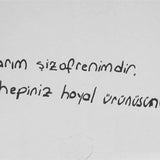 arım şizofrenimdir.
hepiniz hayal ürünüsün